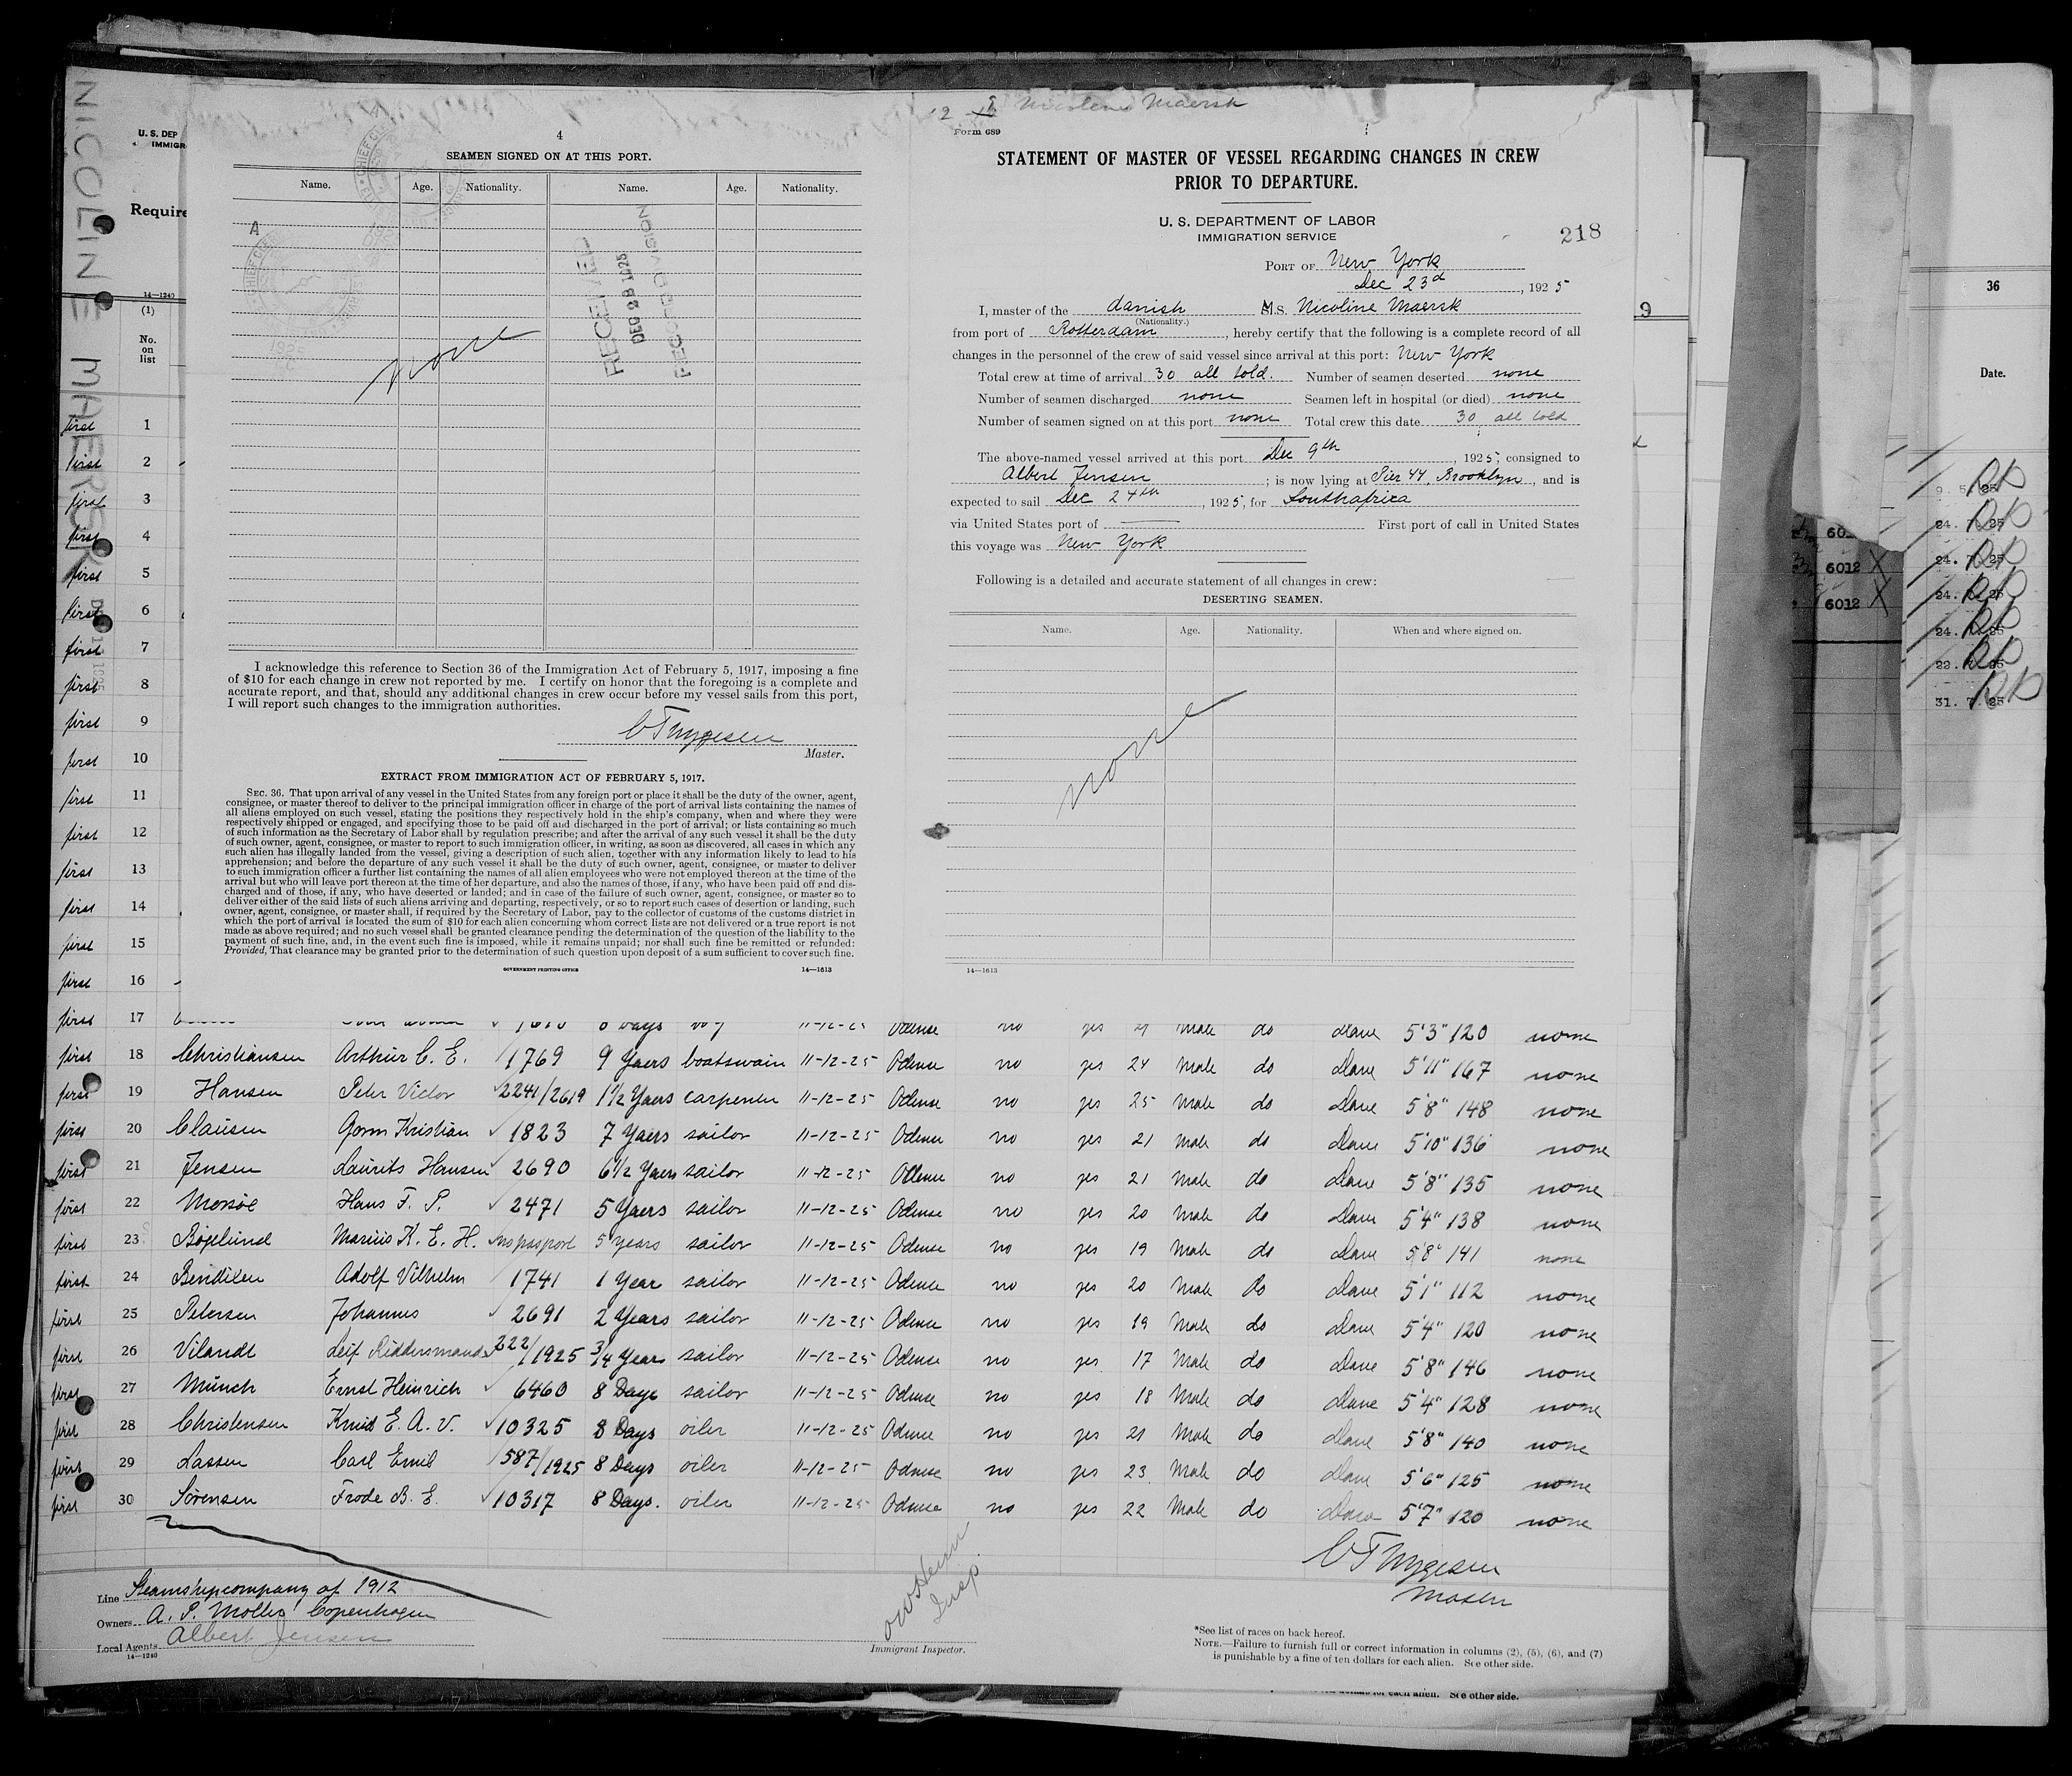 NICOLINE MAERSK
U. S. DEP
IMMIGR
Require
14—1240
(1)
No.
on
list
4
SEAMEN SIGNED ON AT THIS PORT.
Name. Age. Nationality. Name. Age. Nationality.
A
RECEIVED
DEC 28 1925
RECORD DIVISION
none
I acknowledge this reference to Section 36 of the Immigration Act of February 5, 1917, imposing a fine
of $10 for each change in crew not reported by me. I certify on honor that the foregoing is a complete and
accurate report, and that, should any additional changes in crew occur before my vessel sails from this port,
I will report such changes to the immigration authorities.
Master.
EXTRACT FROM IMMIGRATION ACT OF FEBRUARY 5, 1917.
SEC. 36. That upon arrival of any vessel in the United States from any foreign port or place it shall be the duty of the owner, agent,
consignee, or master thereof to deliver to the principal immigration officer in charge of the port of arrival lists containing the names of
all aliens employed on such vessel, stating the positions they respectively hold in the ship's company, when and where they were
respectively shipped or engaged, and specifying those to be paid off and discharged in the port of arrival; or lists containing so much
of such information as the Secretary of Labor shall by regulation prescribe; and after the arrival of any such vessel it shall be the duty
of such owner, agent, consignee, or master to report to such immigration officer, in writing, as soon as discovered, all cases in which any
such alien has illegally landed from the vessel, giving a description of such alien, together with any information likely to lead to his
apprehension; and before the departure of any such vessel it shall be the duty of such owner, agent, consignee, or master to deliver
to such immigration officer a further list containing the names of all alien employees who were not employed thereon at the time of the
arrival but who will leave port thereon at the time of her departure, and also the names of those, if any, who have been paid off and dis-
charged and of those, if any, who have deserted or landed; and in case of the failure of such owner, agent, consignee, or master so to
deliver either of the said lists of such aliens arriving and departing, respectively, or so to report such cases of desertion or landing, such
owner, agent, consignee, or master shall, if required by the Secretary of Labor, pay to the collector of customs of the customs district in
which the port of arrival is located the sum of $10 for each alien concerning whom correct lists are not delivered or a true report is not
made as above required; and no such vessel shall be granted clearance pending the determination of the question of the liability to the
payment of such fine, and, in the event such fine is imposed, while it remains unpaid; nor shall such fine be remitted or refunded:
Provided, That clearance may be granted prior to the determination of such question upon deposit of a sum sufficient to cover such fine.
GOVERNMENT PRINTING OFFICE 14—1613
Nicoline Maersk
Form 689
STATEMENT OF MASTER OF VESSEL REGARDING CHANGES IN CREW
PRIOR TO DEPARTURE.
U. S. DEPARTMENT OF LABOR
IMMIGRATION SERVICE
218
PORT OF New York
Dec 23d, 1925
I, master of the danish M.S. Nicoline Maersk
(Nationality.)
from port of Rotterdam, hereby certify that the following is a complete record of all
changes in the personnel of the crew of said vessel since arrival at this port: New York
Total crew at time of arrival 30 all told. Number of seamen deserted none
Number of seamen discharged none Seamen left in hospital (or died) none
Number of seamen signed on at this port none Total crew this date 30 all told
The above-named vessel arrived at this port Dec 9th, 1925; consigned to
Albert Jensen; is now lying at Pier 44, Brooklyn, and is
expected to sail Dec 24th, 1925, for Southafrica
via United States port of —— First port of call in United States
this voyage was New York
Following is a detailed and accurate statement of all changes in crew:
DESERTING SEAMEN.
Name. Age. Nationality. When and where signed on.
none
14—1613
9
36
Date.
6012 X
6012 X
24. 7. 25
24. 7. 25
31. 7. 25
first 1
first 2
first 3
first 4
first 5
first 6
first 7
first 8
first 9
first 10
first 11
first 12
first 13
first 14
first 15
first 16
first 17 no yes Male do Dane 5'3" 120 none
first 18 Christiansen Arthur C. E. 1769 9 Yaers boatswain 11-12-25 Odense no yes 24 Male do Dane 5'11" 167 none
first 19 Hansen Peter Victor 2241/2619 1½ Yaers carpenter 11-12-25 Odense no yes 25 Male do Dane 5'8" 148 none
first 20 Clausen Gorm Kristian 1823 7 Yaers sailor 11-12-25 Odense no yes 21 Male do Dane 5'10" 136 none
first 21 Jensen Laurits Hansen 2690 6½ Yaers sailor 11-12-25 Odense no yes 21 Male do Dane 5'8" 135 none
first 22 Morsöe Hans F. P. 2471 5 Yaers sailor 11-12-25 Odense no yes 20 Male do Dane 5'4" 138 none
first 23 Bögelund Marius K. E. H. no pasport 5 years sailor 11-12-25 Odense no yes 19 Male do Dane 5'8" 141 none
first 24 Bendixen Adolf Vilhelm 1741 1 Year sailor 11-12-25 Odense no yes 20 Male do Dane 5'1" 112 none
first 25 Petersen Johannes 2691 2 Years sailor 11-12-25 Odense no yes 19 Male do Dane 5'4" 120 none
first 26 Vilandt Leif Riddersmand 222/1925 3/4 Years sailor 11-12-25 Odense no yes 17 Male do Dane 5'8" 146 none
first 27 Münch Ernst Heinrich 6460 8 Days sailor 11-12-25 Odense no yes 18 Male do Dane 5'4" 128 none
first 28 Christensen Knud E. A. V. 10325 8 Days oiler 11-12-25 Odense no yes 21 Male do Dane 5'8" 140 none
first 29 Lassen Carl Emil 587/1925 8 Days oiler 11-12-25 Odense no yes 23 Male do Dane 5'6" 125 none
first 30 Sörensen Frode B. E. 10317 8 Days. oiler 11-12-25 Odense no yes 22 Male do Dane 5'7" 120 none
Master
Line Steamshipcompany of 1912
Owners A. P. Moller Copenhagen
Local Agents Albert Jensen
14—1240
Insp.
Immigrant Inspector.
*See list of races on back hereof.
NOTE.—Failure to furnish full or correct information in columns (2), (5), (6), and (7)
is punishable by a fine of ten dollars for each alien. See other side.
See other side.